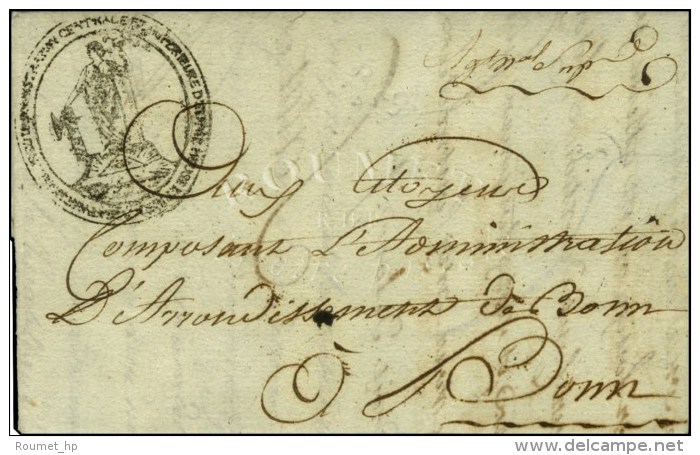 ADMINISTRATION CENTRALE ET SUPERIEURE D
Aux Citoyens
Composant L'Administration
D'Arrondissement de Bonn
à Bonn
ROUMET
Roumet_hp
www.delcampe.net